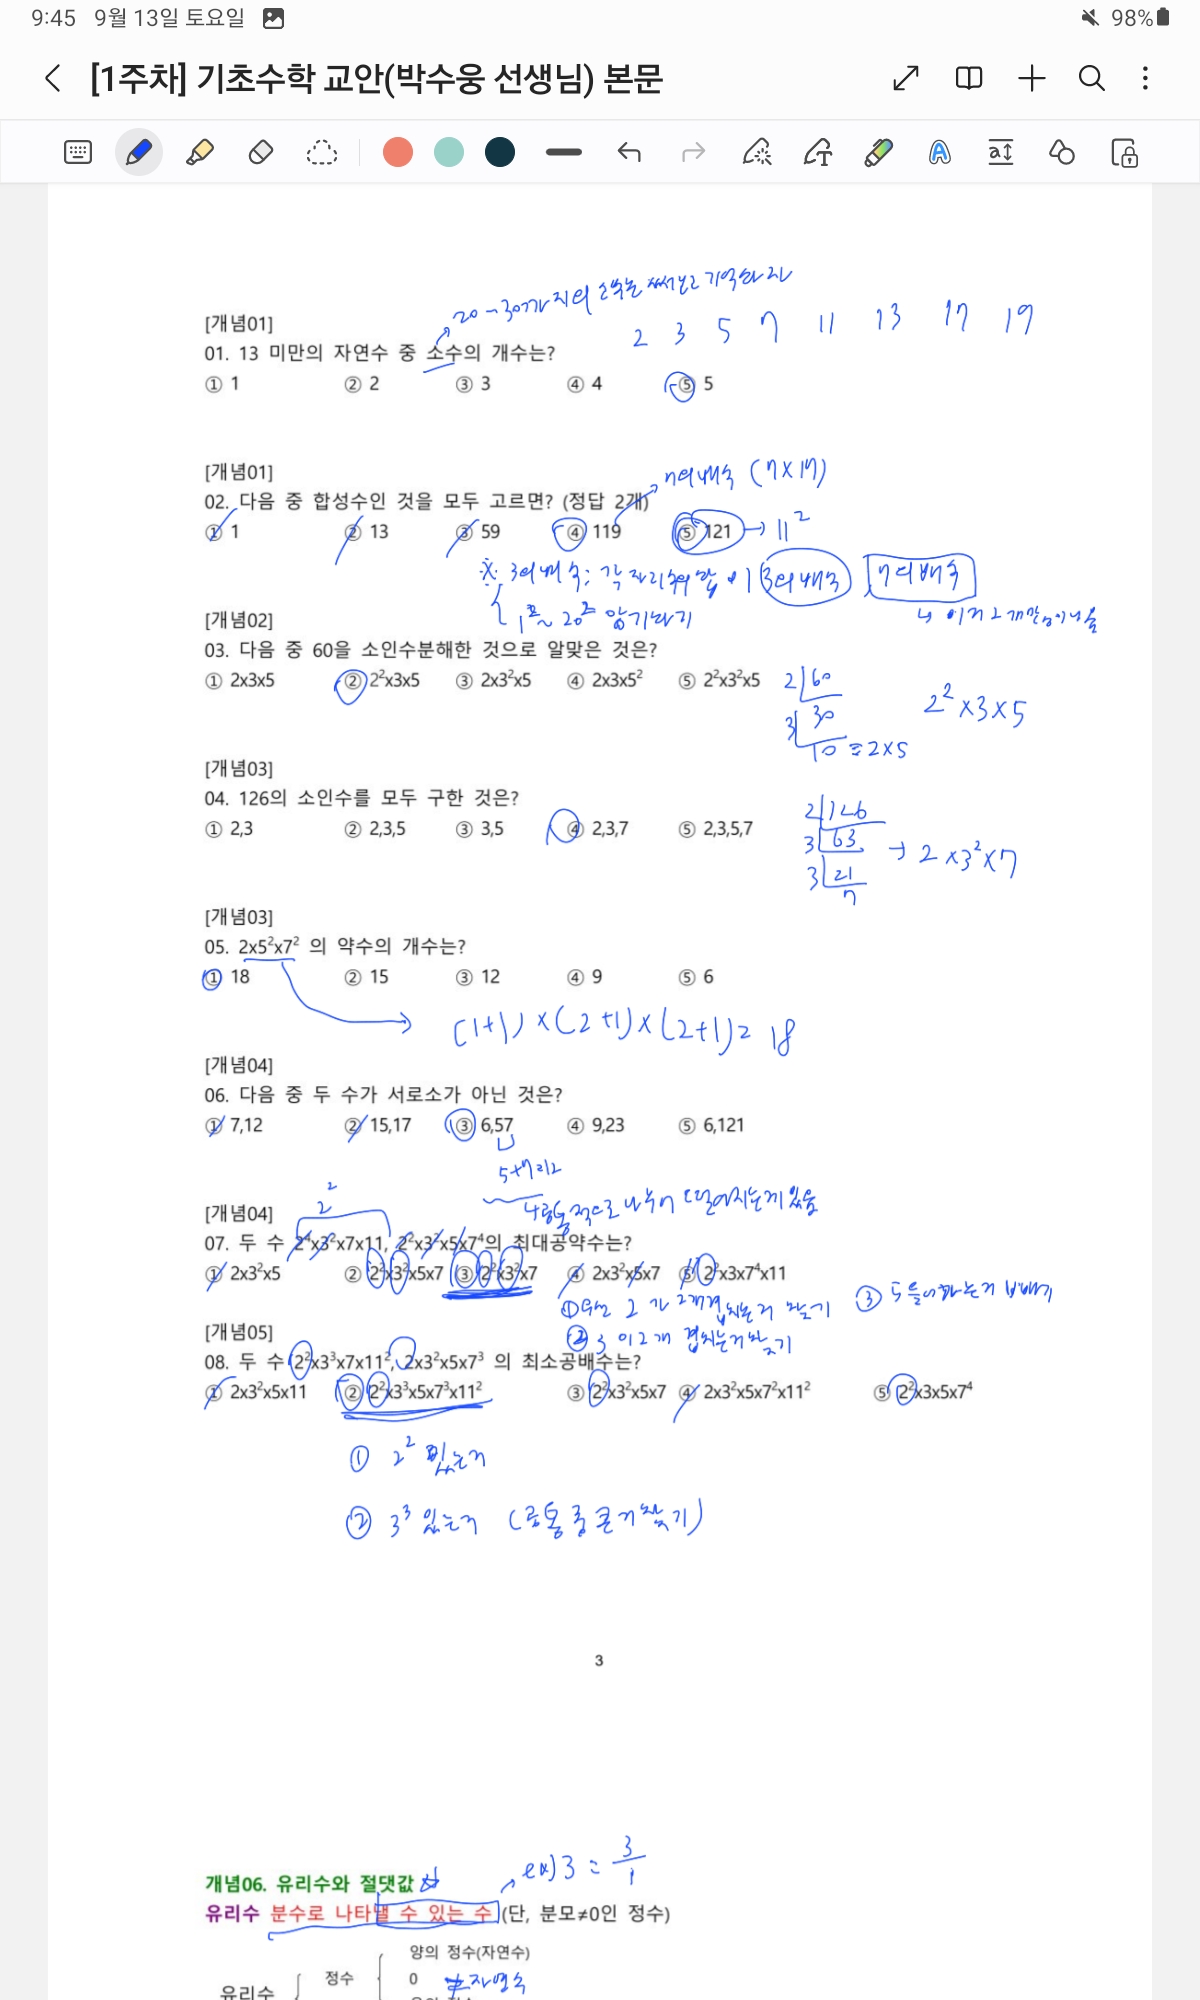 9:45 9월 13일 토요일 98%
[1주차] 기초수학 교안(박수웅 선생님) 본문
20~30까지의 소수는 써보고 기억하자
[개념01]
2 3 5 7 11 13 17 19
01. 13 미만의 자연수 중 소수의 개수는?
① 1 ② 2 ③ 3 ④ 4 ⑤ 5
[개념01]
7의배수 (7×17)
02. 다음 중 합성수인 것을 모두 고르면? (정답 2개)
① 1 ② 13 ③ 59 ④ 119 ⑤ 121 → 11²
※ 3의배수: 각 자리수의 합이 3의배수 7의배수
1²~20² 암기하기
[개념02]
03. 다음 중 60을 소인수분해한 것으로 알맞은 것은?
① 2x3x5 ② 2²x3x5 ③ 2x3²x5 ④ 2x3x5² ⑤ 2²x3²x5
2 60
3 30
10 = 2×5
2²×3×5
[개념03]
04. 126의 소인수를 모두 구한 것은?
① 2,3 ② 2,3,5 ③ 3,5 ④ 2,3,7 ⑤ 2,3,5,7
2 126
3 63
3 21
7
→ 2×3²×7
[개념03]
05. 2x5²x7² 의 약수의 개수는?
① 18 ② 15 ③ 12 ④ 9 ⑤ 6
(1+1)×(2+1)×(2+1)= 18
[개념04]
06. 다음 중 두 수가 서로소가 아닌 것은?
① 7,12 ② 15,17 ③ 6,57 ④ 9,23 ⑤ 6,121
5+7=12
↳공통적으로 나누어 떨어지는게 있음
2²
[개념04]
07. 두 수 2⁴x3²x7x11, 2²x3³x5x7⁴의 최대공약수는?
① 2x3²x5 ② 2²x3²x5x7 ③ 2²x3²x7 ④ 2x3²x5x7 ⑤ 2²x3x7⁴x11
① 우선 2가 2개 겹치는거 찾기
② 3이 2개 겹치는거 찾기
③ 5 들어가는거 빼기
[개념05]
08. 두 수 2²x3³x7x11², 2x3²x5x7³ 의 최소공배수는?
① 2x3²x5x11 ② 2²x3³x5x7³x11² ③ 2²x3²x5x7 ④ 2x3²x5x7²x11² ⑤ 2²x3x5x7⁴
① 2² 있는거
② 3³ 있는거 (공통중 큰거 찾기)
3
개념06. 유리수와 절댓값
ex) 3 = 3/1
유리수 분수로 나타낼 수 있는 수 (단, 분모≠0인 정수)
양의 정수(자연수)
정수 0 ≠자연수
유리수